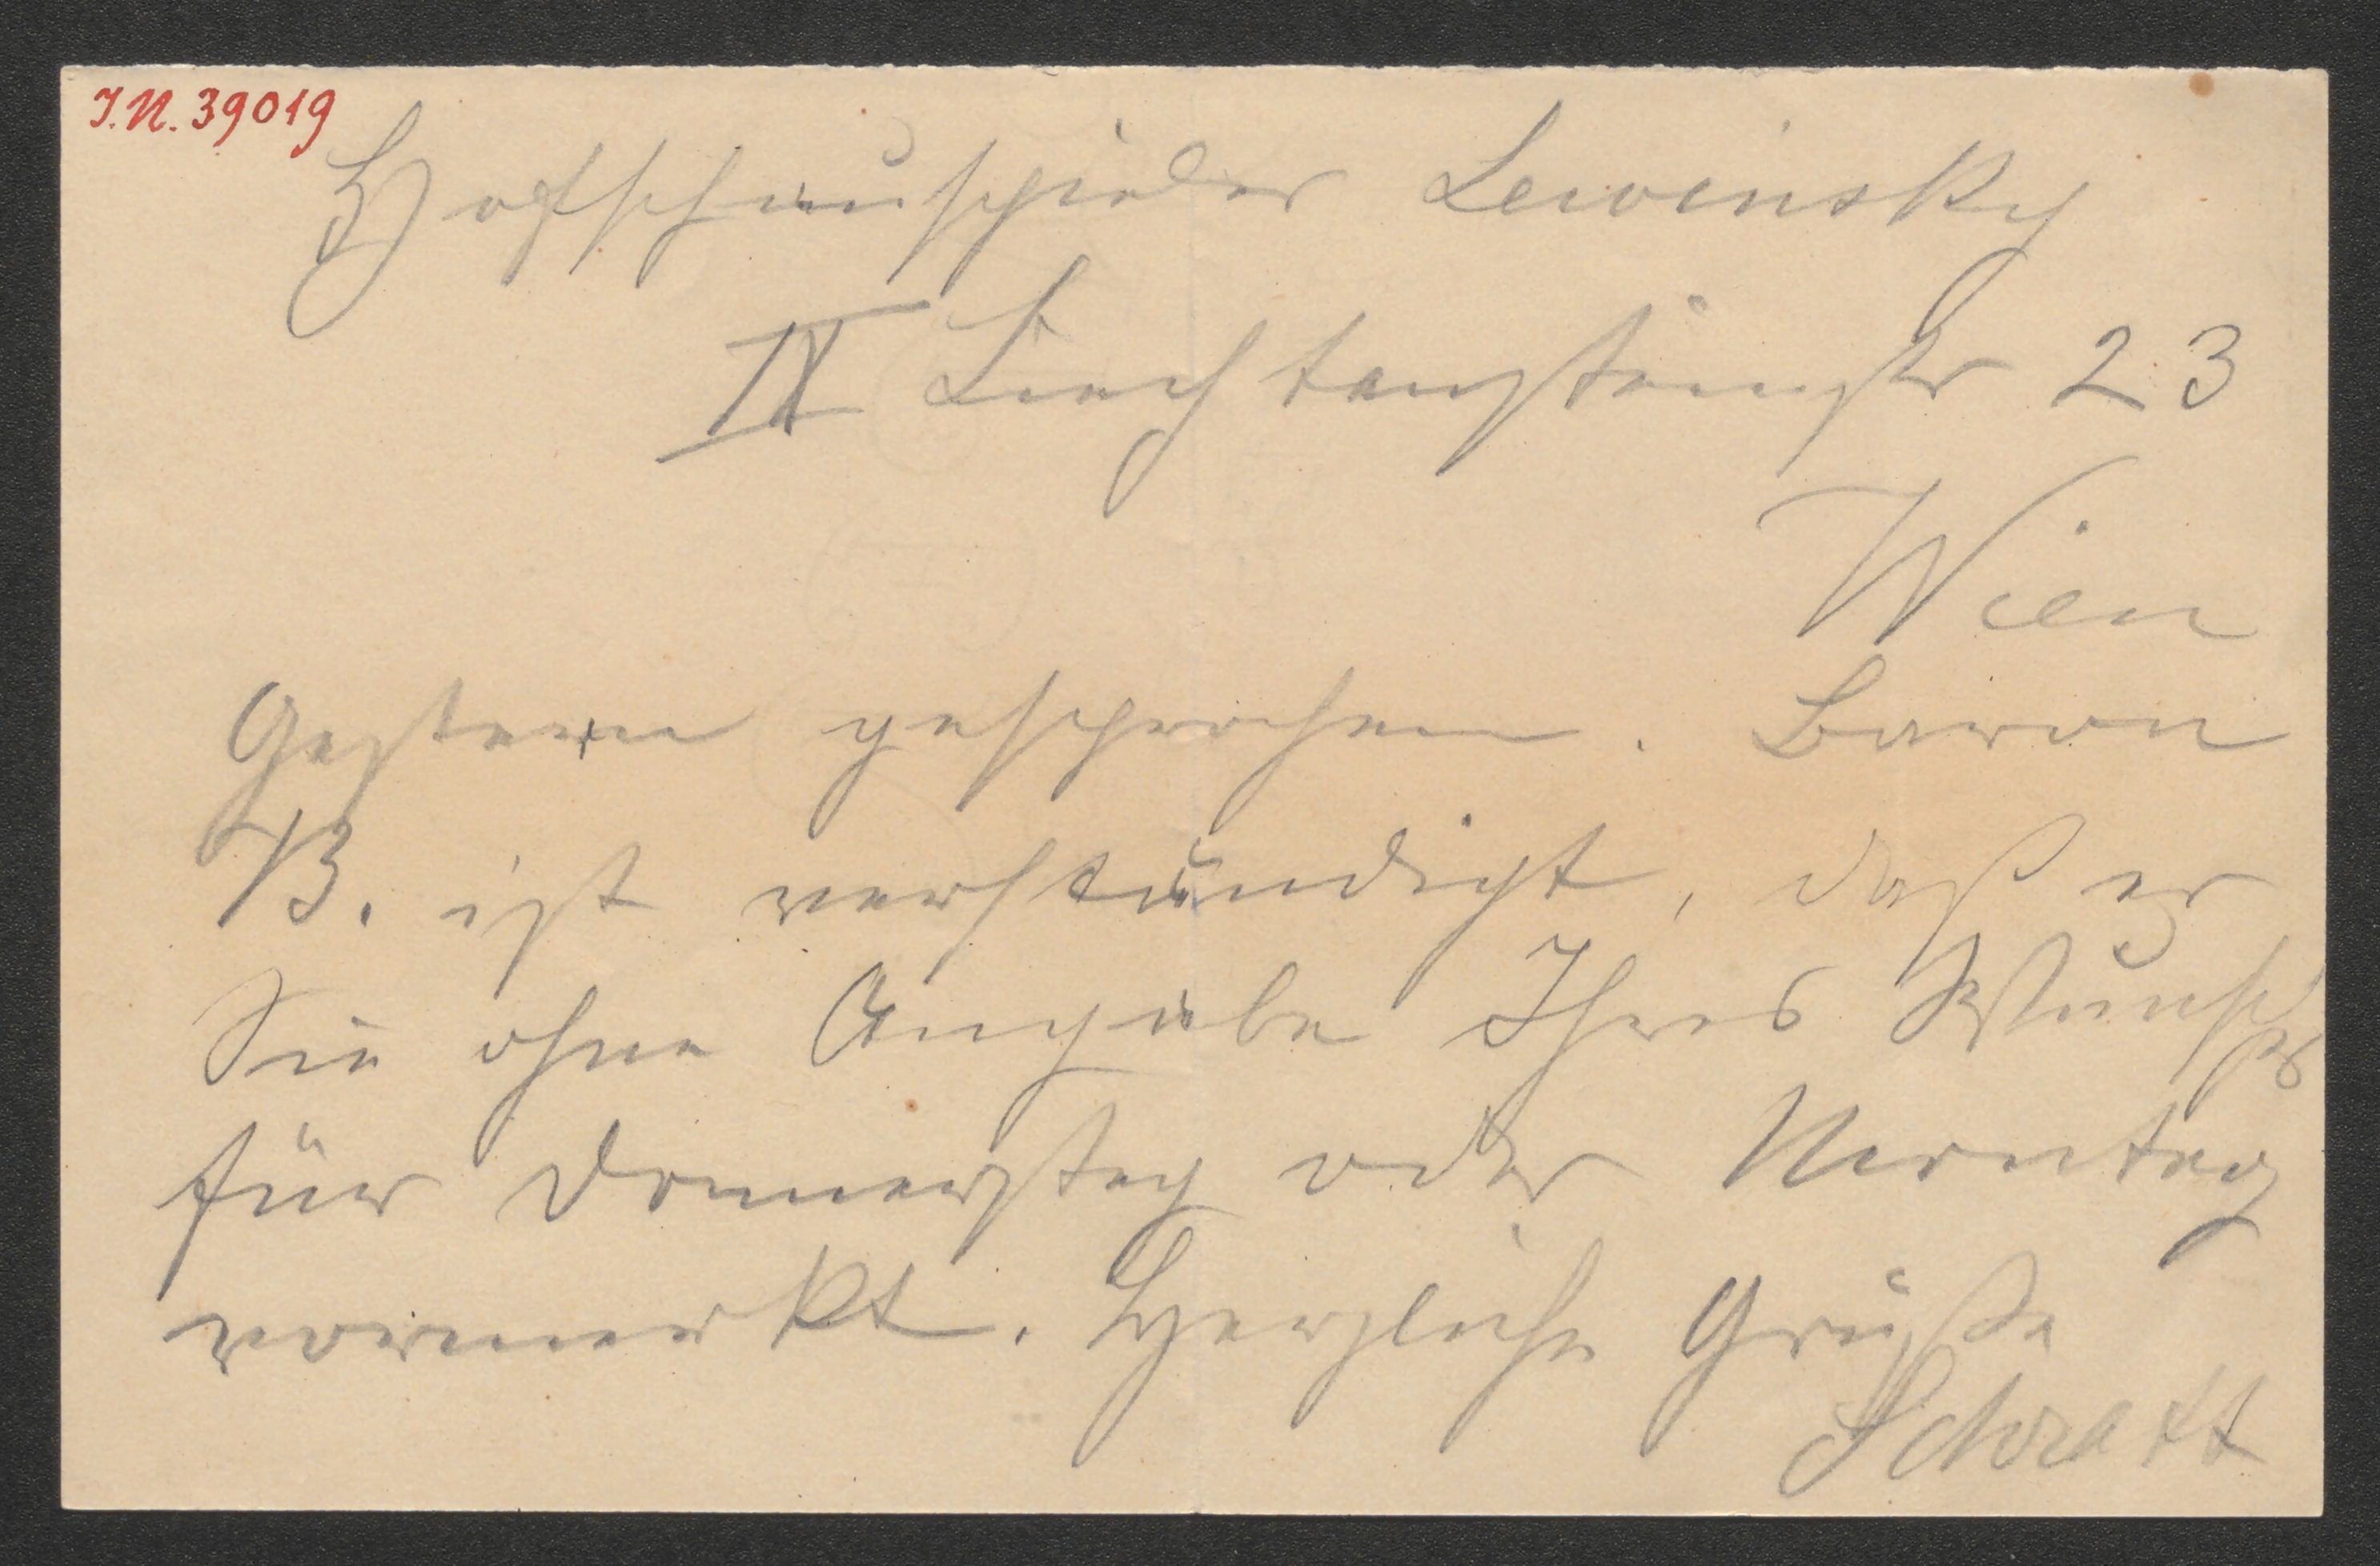 I.N. 39019
Hofschauspieler Lewinsky
IX Liechtensteinstr 23
Wien
Gestern gesprochen. Baron
B. ist verständigt, daß er
Sie ohne Angabe Ihres Wunsches
für Donnerstag oder Montag
vormerkt. Herzliche Grüße
Schratt